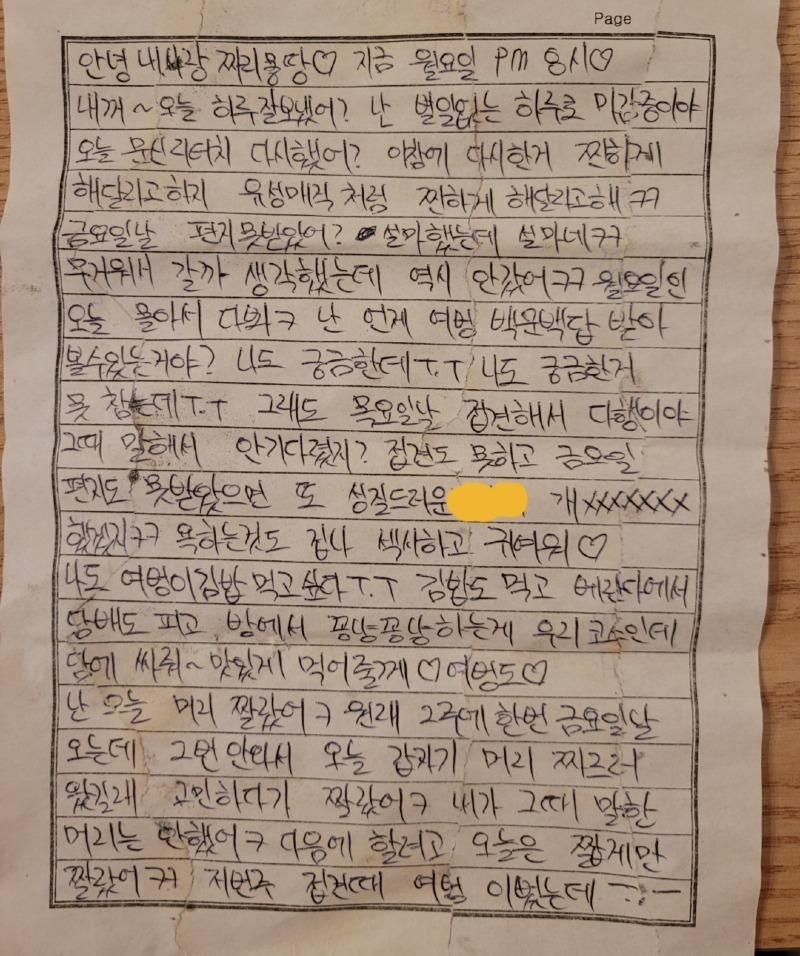 Page
안녕 내사랑 짜리몽땅♡ 지금 월요일 PM 8시♡
내꺼~오늘 하루 잘보냈어? 난 별일없는 하루로 마감중이야
오늘 문신리터치 다시했어? 이참에 다시한거 찐하게
해달라고하지 유성매직처럼 찐하게 해달라고해ㅋㅋ
금요일날 편지못받았어? 설마했는데 설마네ㅋㅋ
무거워서 갈까 생각했는데 역시 안갔어ㅋㅋ 월요일인
오늘 몰아서 다봐ㅋ 난 언제 여벙 백문백답 받아
볼수있는거야? 나도 궁금한데T.T 나도 궁금한거
못 참는데T.T 그래도 목요일날 접견해서 다행이야
그때 말해서 안기다렸지? 접견도 못하고 금요일
편지도 못받았으면 또 성질드러운 개xxxxxxx
했겠지ㅋㅋ 욕하는것도 겁나 섹시하고 귀여워♡
나도 여벙이김밥 먹고싶다T.T 김밥도 먹고 베란다에서
담배도 피고 방에서 퐁냥퐁냥하는게 우리코스인데
담에 싸줘~맛있게 먹어줄게♡여벙도♡
난 오늘 머리 짤랐어ㅋ 원래 2주에 한번 금요일날
오는데 그먼 안와서 오늘 갑자기 머리 짜르러
왔길래 고민하다가 짝랐어ㅋ 씨가 그때 말한
머리는 안했어ㅋ 다음에 할려고 오늘은 짧게만
짤랐어ㅋㅋ 저번주 접견때 여벙 이뻤는데